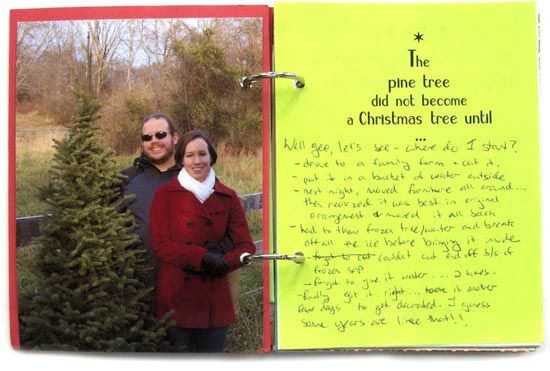 The
pine tree
did not become
a Christmas tree until
...
Well gee, let's see - where do I start?
- drove to a family farm + cut it.
- put it in a bucket of water outside
- next night, moved furniture all around...
then realized it was best in original
arrangement & moved it all back
- had to thaw frozen tree/water and break
off all the ice before bringing it inside
- forgot to cut couldn't cut end off b/c of
frozen sap
- forgot to give it water .... 2 times.
- finally got it right... took it another
few days to get decorated. I guess
some years are like that!!